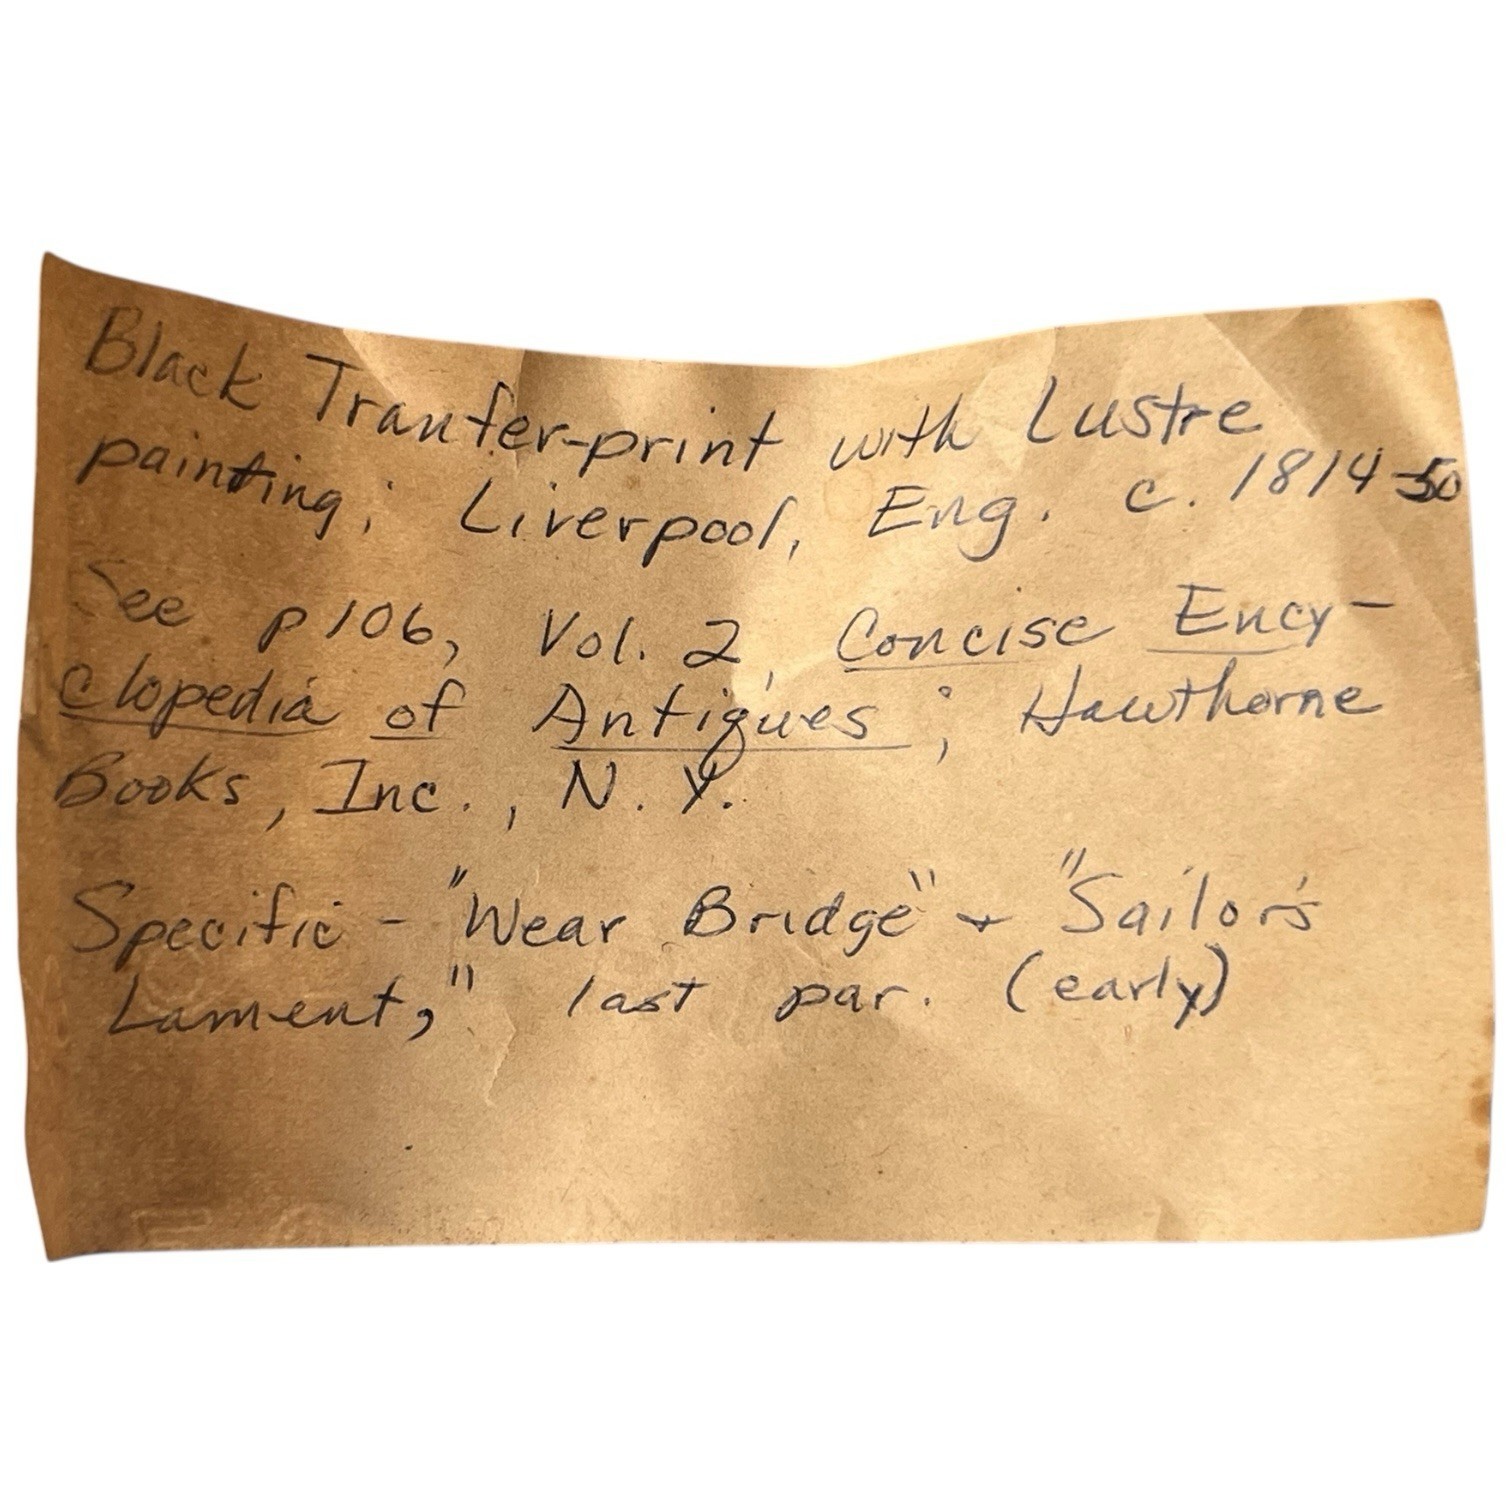 Black Tranfer-print with Lustre
painting; Liverpool, Eng. c. 1814-50
See p 106, Vol. 2, Concise Ency-
clopedia of Antiques; Hawthorne
Books, Inc., N.Y.
Specific - "Wear Bridge" + "Sailor's
Lament," last par. (early)